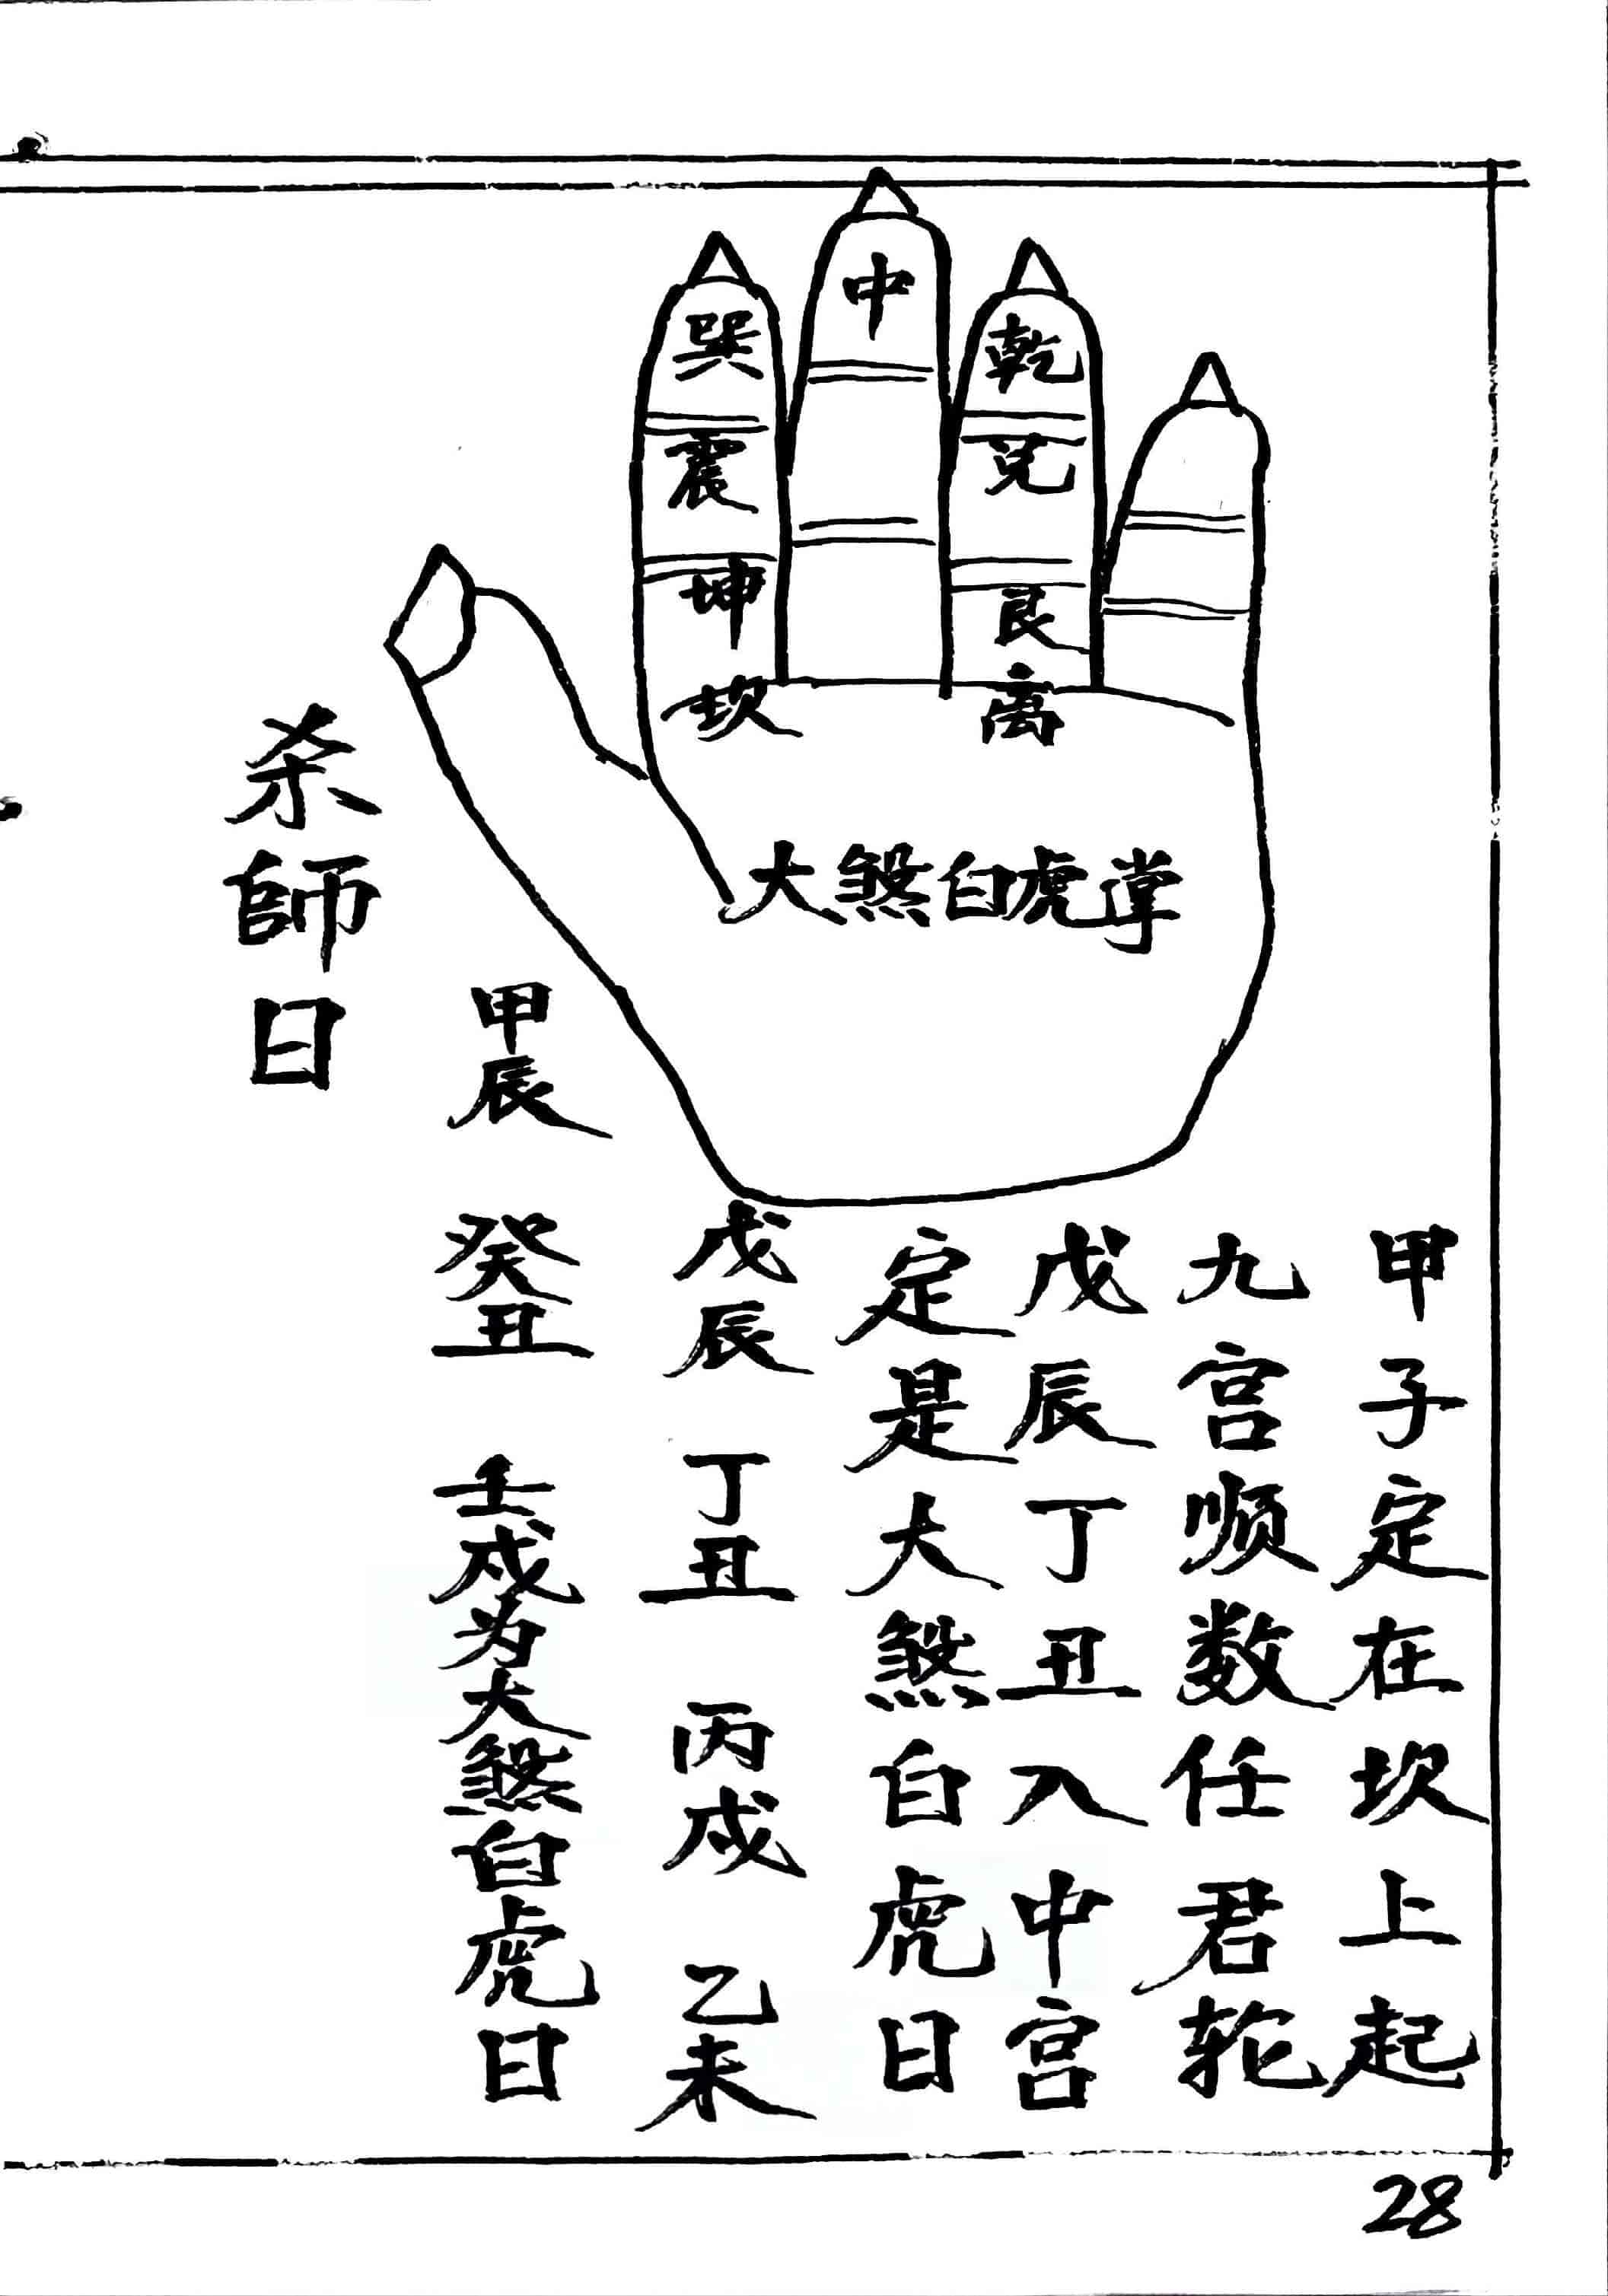 巽
震
坤
坎
中
乾
兑
艮
离
大煞白虎掌
甲子定在坎上起
九宫顺数任君轮
戊辰丁丑入中宫
定是大煞白虎日
戊辰 丁丑 丙戌 乙未
甲辰 癸丑 壬戌为大煞白虎日
杀師日
28